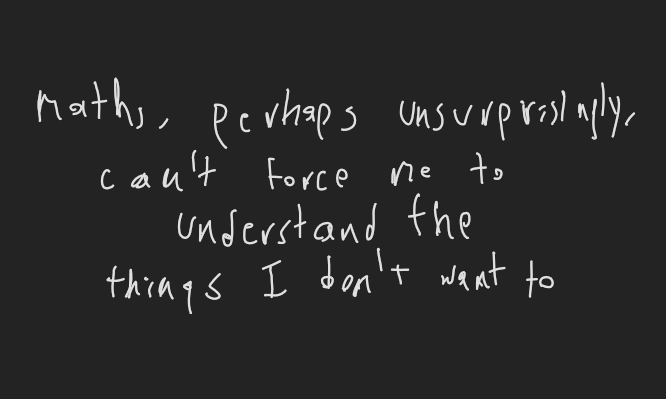 Maths, perhaps unsurprisingly,
can't force me to
understand the
things I don't want to